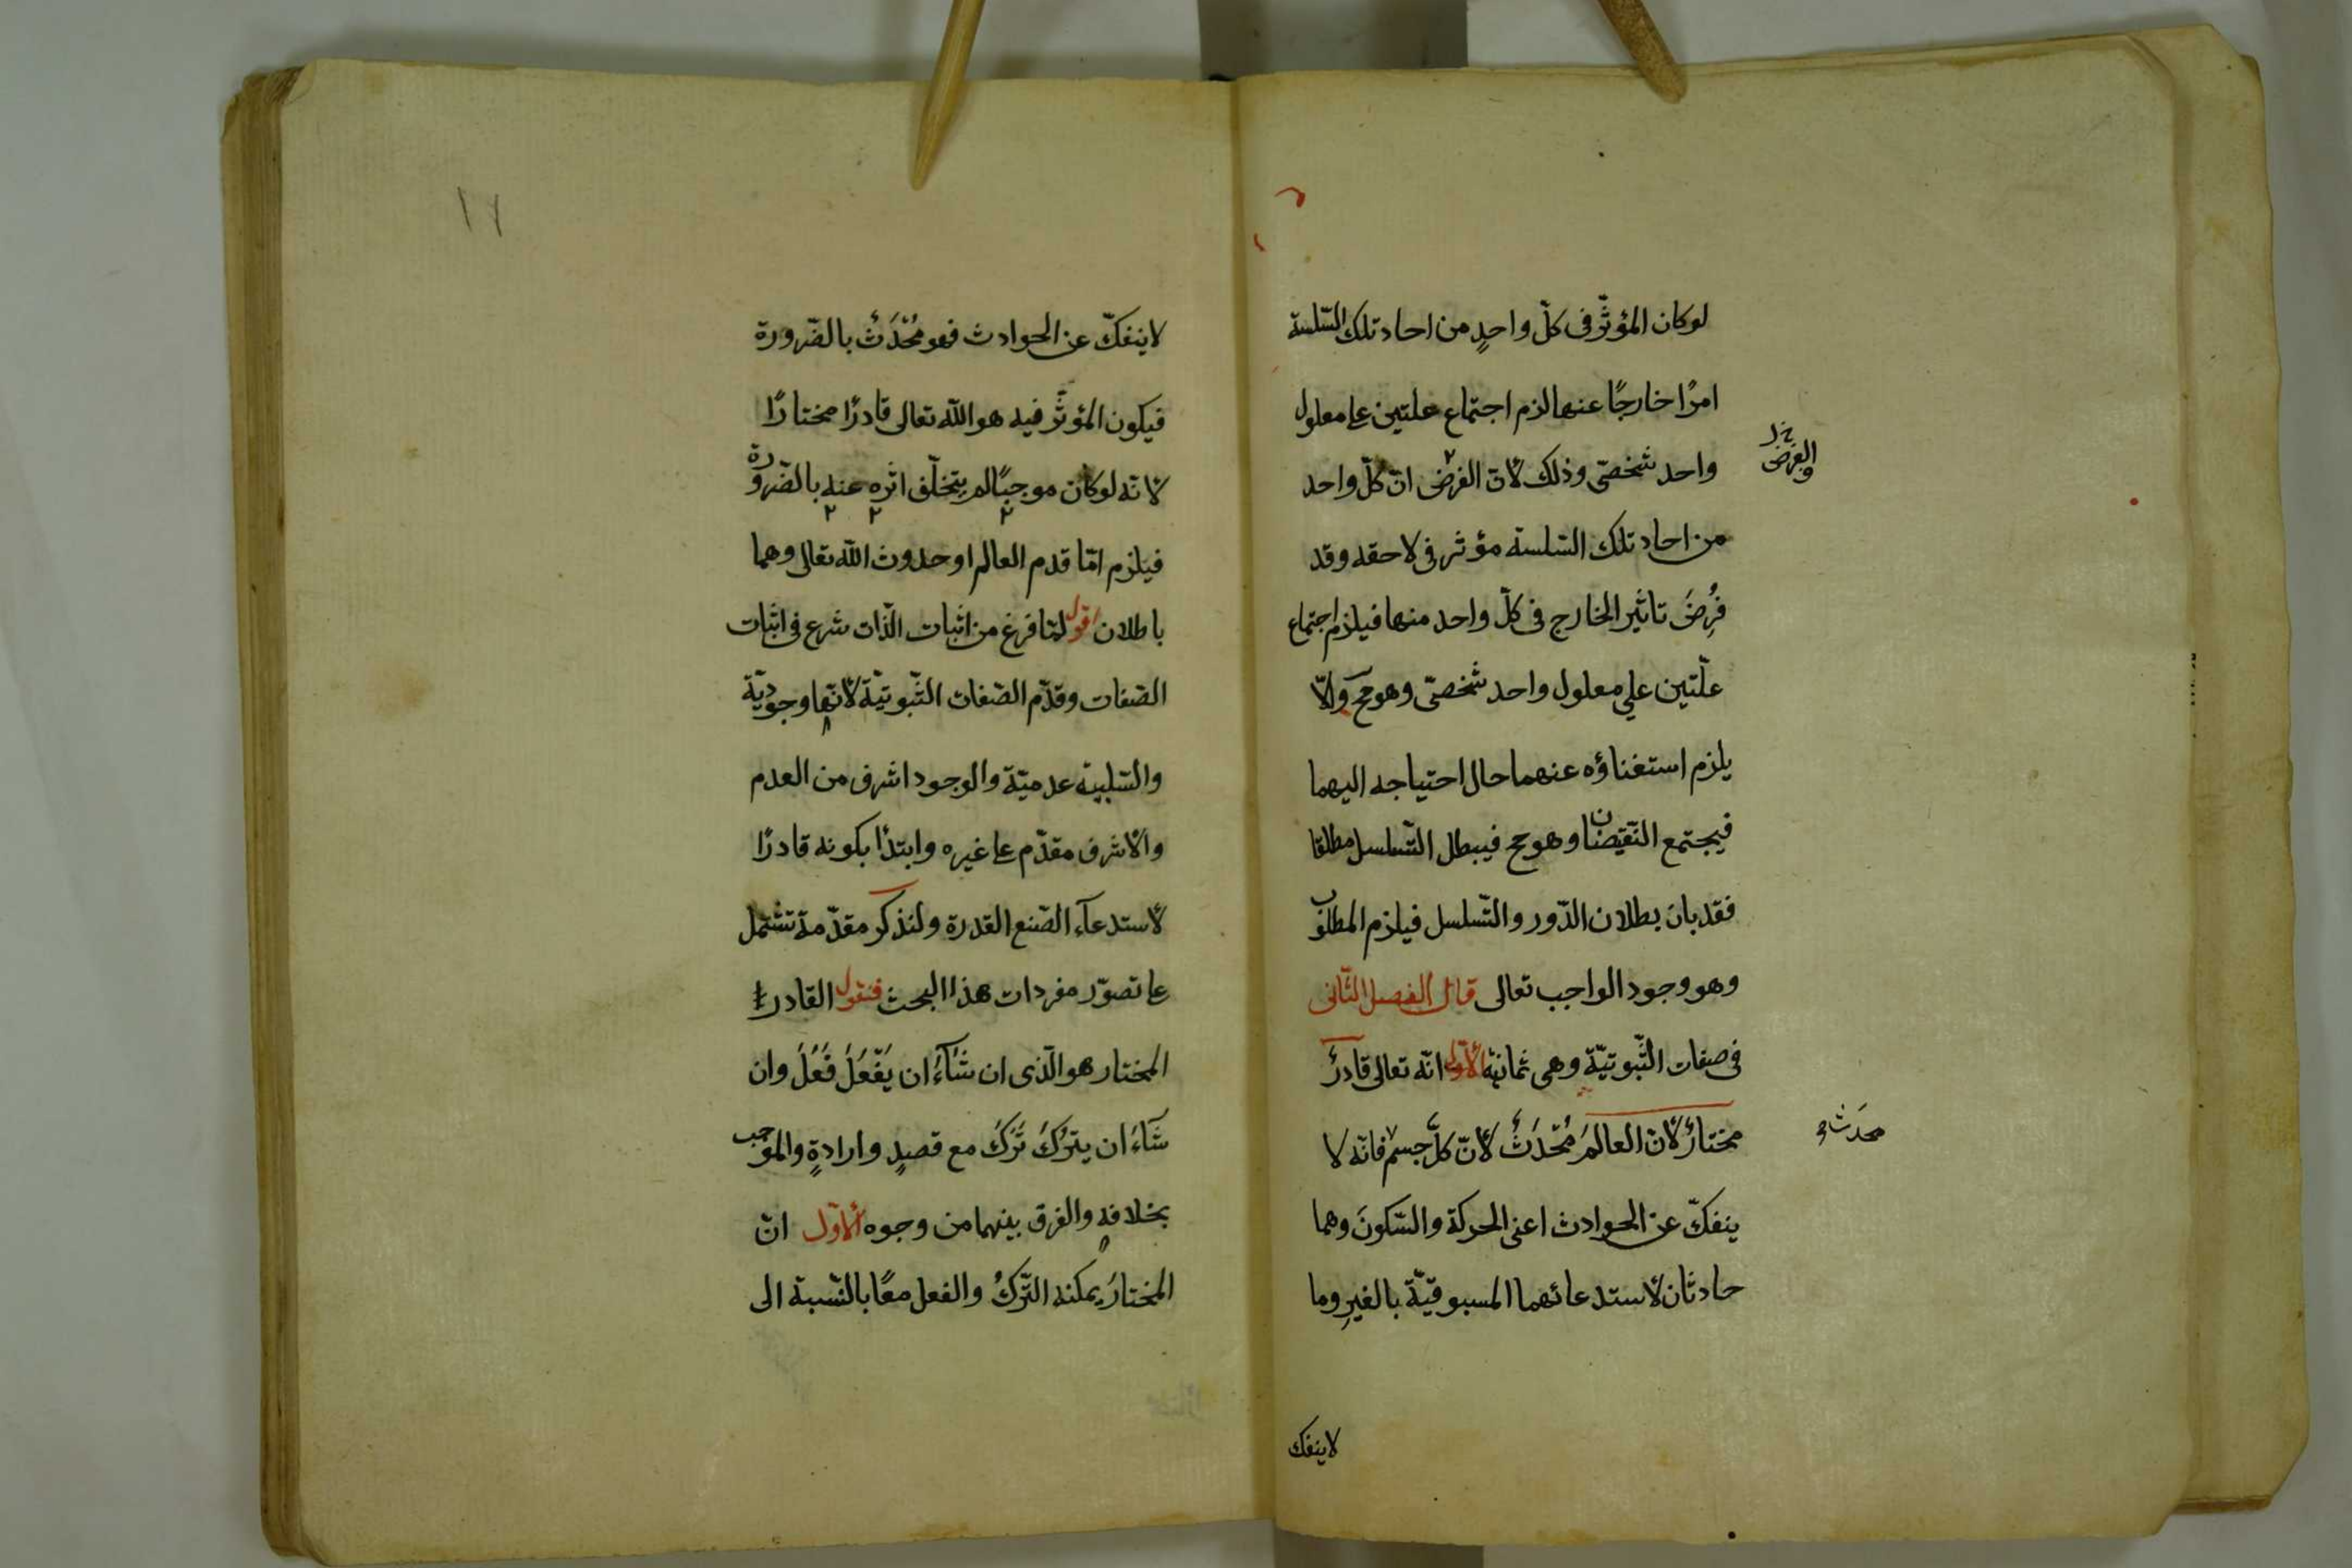 لو كان المؤثّر فى كلّ واحدٍ من احاد تلك السّلسة
امرًا خارجًا عنها لزم اجتماع علتين على معلول
واحد شخصىّ وذلك لانّ الفرض انّ كلّ واحد
من احاد تلك السّلسة مؤثر فى لاحقه وقد
فُرِضَ تاثير الخارج فى كلّ واحد منها فيلزم اجتماع
علّتين علي معلول واحد شخصىّ وهو مح والّا
يلزم استغناؤه عنهما حال احتياجه اليهما
فيجتمع النّقيضان وهو مح فيبطل التّسلسل مطلقا
فقد بان بطلان الدّور والتّسلسل فيلزم المطلوب
وهو وجود الواجب تعالى قال الفصل الثّانى
فى صفات الثّبوتيّة وهى ثمانية الاوّل انّه تعالى قادرٌ
مختارٌ لانّ العالمَ مُحْدَثٌ لأنّ كلّ جسم فانّه لا
ينفكّ عن الحوادث اعنى الحركة والسّكونَ وهما
حادثان لأستدعائهما المسبوقيّة بالغيرِ وما
لاينفك
والفرض
محدث
١٧
لاينفكّ عن الحوادث فهو مُحْدَثٌ بالضّرورة
فيكون المؤثّر فيه هو اللّه تعالى قادرًا مختارًا
لانّه لو كان موجبًا لم يتخلّف اثره عنه بالضّرورة
فيلزم امّا قدم العالم او حدوث اللّه تعالى وهما
باطلان اقول لمّا فرغ من اثبات الذّات شرع فى اثبات
الصّفات وقدّم الصّفات الثّبوتيّة لأنّها وجوديّة
والسّلبية عدميّة والوجود اشرف من العدم
والأشرف مقدّم على غيره وابتدأ بكونه قادرًا
لأستدعآء الصّنع القدرة ولنذكر مقدّمة تشتمل
على تصوّر مفردات هذا البحث فنقول القادر
المختار هو الّذى ان شَآءَ ان يَفْعَلَ فَعَلَ وان
شَآءَ ان يترُكَ تَرَكَ مع قصدٍ وارادةٍ والموجب
بخلافه والفرق بينهما من وجوه الأوّل انّ
المختارَ يمكنه التّركُ والفعل معًا بالنّسبة الى